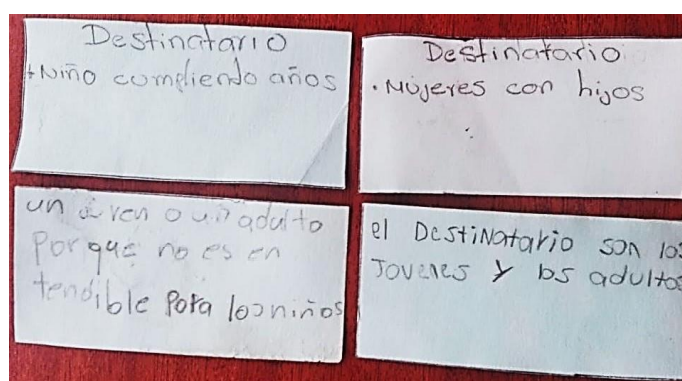 Destinatario
+ Niño cumpliendo años
Destinatario
. Mujeres con hijos
un joven o un adulto
Porque no es en
tendible para los niños
el Destinatario son los
Jovenes y los adultos